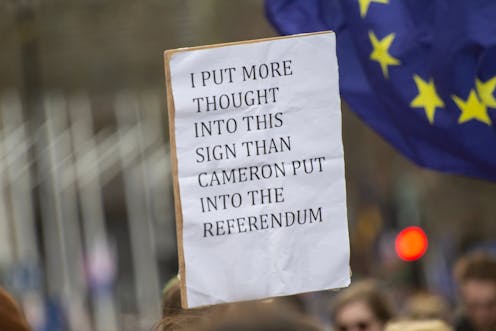 I PUT MORE
THOUGHT
INTO THIS
SIGN THAN
CAMERON PUT
INTO THE
REFERENDUM